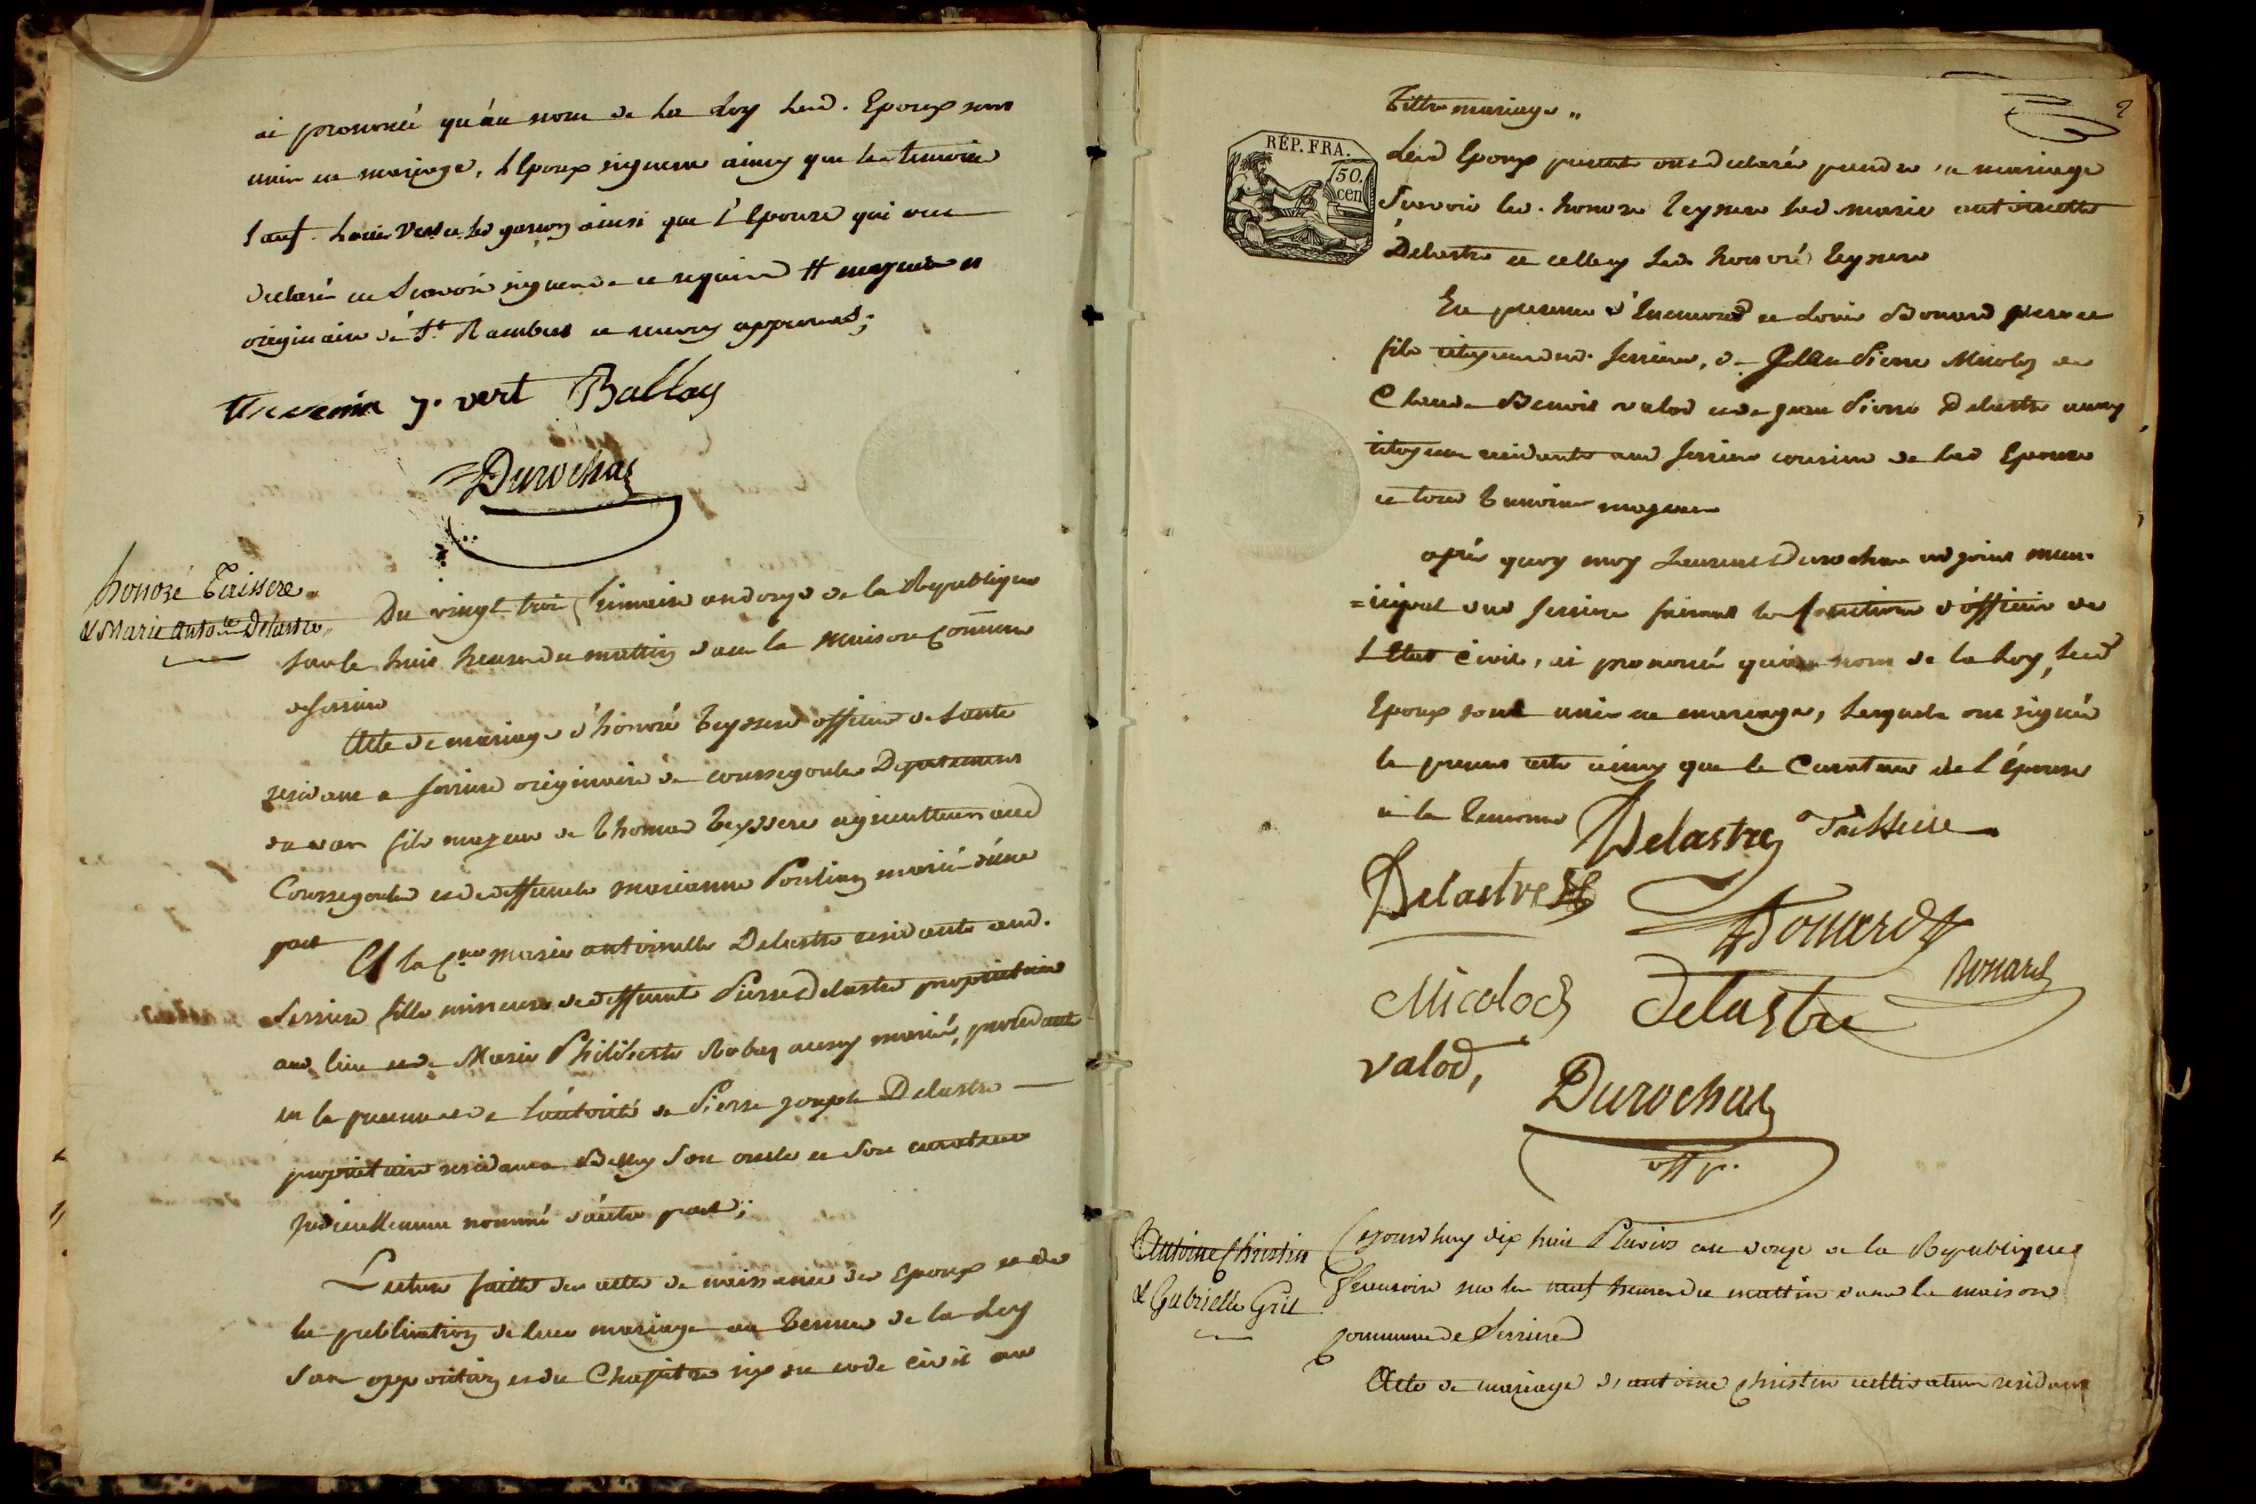 ai prononcé qu'au nom de la Loy Lesd. Epoux sont
unis en mariage, l'Epoux signera ainsy que les temoins
sauf Louis ainsi que l'Epouse qui ont
declarés ne Scavoir signer de ce requis # mayeur
originaire de St. Rambert
J. vert Ballay
Durochas
honoré Teissere
& Marie Antotte Delastre
Du vingt trois frimaire an douze de la Republique
sur les huit heures du mattin dans la Maison Commune
de serriere
Acte de mariage d'honoré Teyssere officier de Santé
residant a serriere originaire de coursegoules Departement
du var fils mayeur de Thomas Teyssere agriculteur aud
Coursegoules et de deffuncte marianne mariés d'une
part Et la Cne marie antoinette Delastre residante aud.
Serriere fille mineure de deffunct Pierre Delastre proprietaire
aud lieu et de Marie Philiberte aussy mariés, procedant
en la presence et de l'autorité de Pierre joseph Delastre
proprietaire residant a Belley son oncle et son curateur
judiciellement nommé d'autre part;
Lecture faitte des actes de naissance des Epoux et de
la publication de leur mariage au termes de la Loy
sans opposition et du Chapitre six du code civil au
Tittre mariage "
2
RÉP. FRA.
50.
cen
Lesd Epoux presents ont declarés prendre en mariage
Scavoir led. honoré Teyssere lad. marie antoinette
Delastre et celle cy led. honoré Teyssere
En presence d' et Louis Bonard pere et
fils citoyens dud. serriere, de Jean Pierre Micolod de
Claude Benoit valod et de jean Pierre Delastre aussy
citoyens residants aud serriere cousins de lad Epouse
et tous temoins mayeurs
aprés quoy moy Laurent Durochas adjoint muni-
=cipal dud serriere faisant les fonctions d'officier de
L'Etat civil, ai prononcé qu'au nom de la Loy, lesd
Epoux sont unis en mariage, lesquels ont signés
le present acte ainsy que le Curateur de l'épouse
et les Temoins Delastre Taisseire
Delastre
Bonard
Micolod Delastre Bonard
valod,
Durochas
off p.
Antoine Christin
& Gabrielle Gril
Cejourdhuy dix huit Pluvios an douze de la Republique
francoise sur les neuf heures du mattin dans la maison
commune de Serriere
Acte de mariage d'antoine Christin cultivateur residant